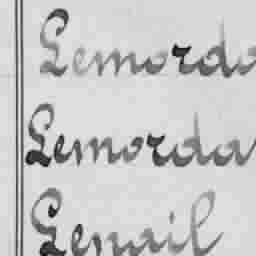 Lemorda
Lemorda
Lenail